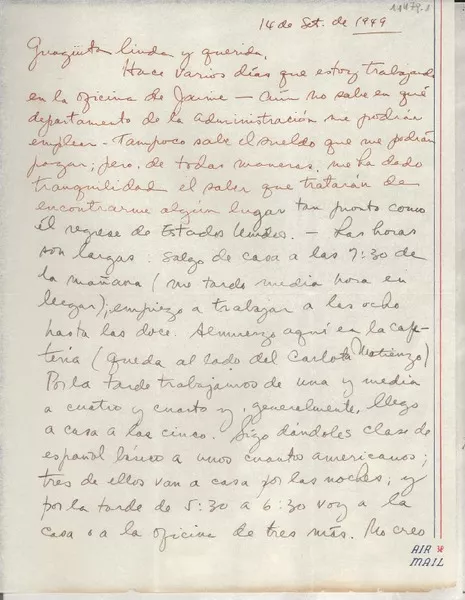 11479.1
14 de Set. de 1949
Guagüita linda y querida,
Hace varios días que estoy trabajando
en la oficina de Jaime — Aún no sabe en qué
departamento de la administración me podrían
emplear - Tampoco sabe el sueldo que me podrán
pagar; pero, de todas maneras, me ha dado
tranquilidad el saber que tratarán de
encontrarme algún lugar tan pronto como
él regrese de Estados Unidos. — Las horas
son largas: Salgo de casa a las 7:30 de
la mañana (me tardo media hora en
llegar); empiezo a trabajar a las ocho
hasta las doce. Almuerzo aquí en la cafe-
tería (queda al lado del Carlota Matienzo)
Por la tarde trabajamos de una y media
a cuatro y cuarto y, generalmente, llego
a casa a las cinco. Sigo dándoles clase de
español a unos cuantos americanos;
tres de ellos van a casa por las noches, y
por la tarde de 5:30 a 6:30 voy a la
casa o a la oficina de tres más. No creo
AIR
MAIL